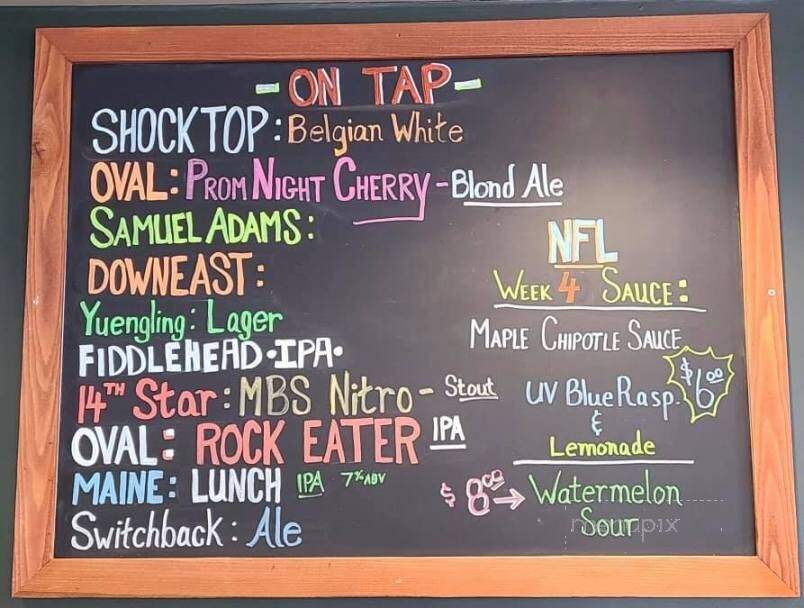 - ON TAP -
SHOCK TOP: Belgian White
OVAL: PROM NIGHT CHERRY - Blond Ale
SAMUEL ADAMS:
DOWNEAST:
Yuengling: Lager
FIDDLEHEAD • IPA •
14TH Star: MBS Nitro - Stout
OVAL: ROCK EATER IPA
MAINE: LUNCH IPA 7% ABV
Switchback: Ale
NFL
WEEK 4 SAUCE:
MAPLE CHIPOTLE SAUCE
UV Blue Rasp. $6.00
&
Lemonade
$8.00 → Watermelon
Sour
menupix